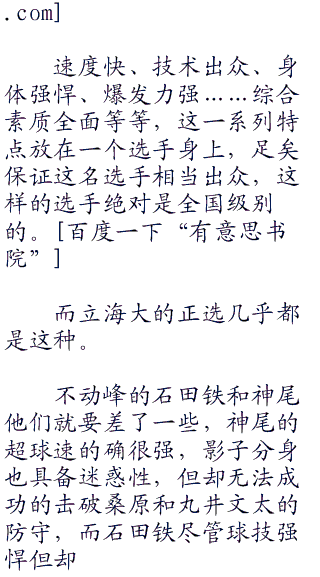 .com]
速度快、技术出众、身
体强悍、爆发力强……综合
素质全面等等，这一系列特
点放在一个选手身上，足矣
保证这名选手相当出众，这
样的选手绝对是全国级别
的。[百度一下“有意思书
院”]
而立海大的正选几乎都
是这种。
不动峰的石田铁和神尾
他们就要差了一些，神尾的
超球速的确很强，影子分身
也具备迷惑性，但却无法成
功的击破桑原和丸井文太的
防守，而石田铁尽管球技强
悍但却